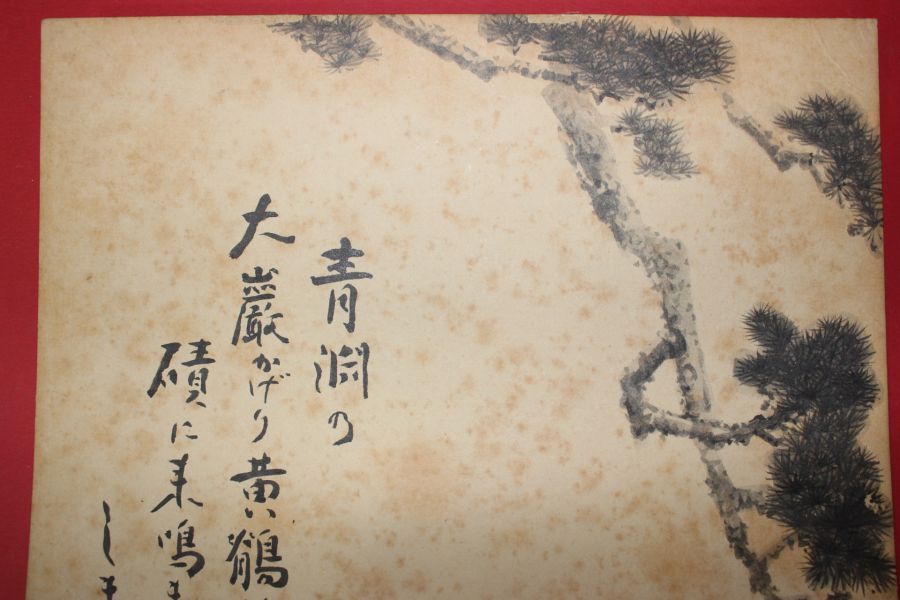 青淵の
大巌かげり黄鶺
磧に来鳴
しま